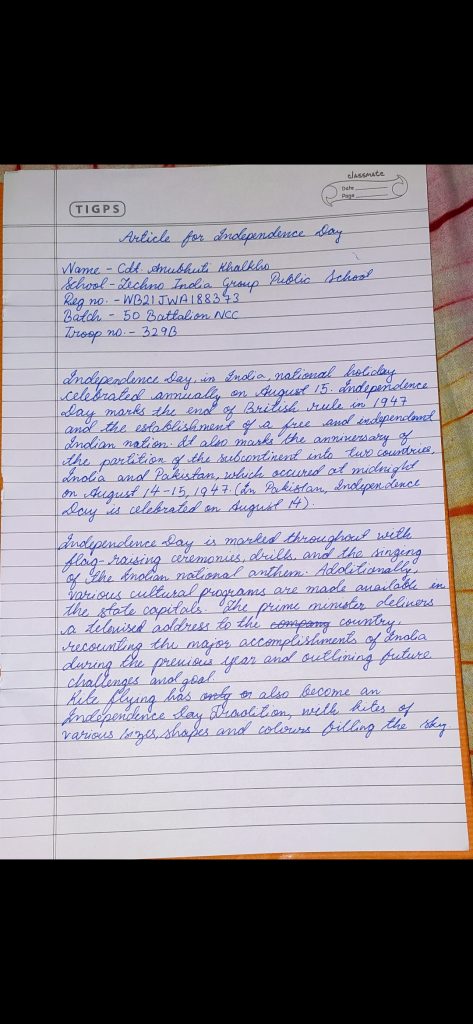 classmate
Date
Page
TIGPS
Article for Independence Day
Name - Cdt. Anubhuti Khalkho
School - Techno India Group Public School
Reg no. - WB21JWA188373
Batch - 50 Battalion NCC
Troop no. - 329B
Independence Day, in India, national holiday
celebrated annually on August 15. Independence
Day marks the end of British rule in 1947
and the establishment of a free and independent
Indian nation. It also marks the anniversary of
the partition of the subcontinent into two countries,
India and Pakistan, which occured at midnight
on August 14-15, 1947. (In Pakistan, Independence
Day is celebrated on August 14).
Independence Day is marked throughout with
flag-raising ceremonies, drills, and the singing
of the Indian national anthem. Additionally,
various cultural programs are made available in
the state capitals. The prime minister delivers
a televised address to the company country,
recounting the major accomplishments of India
during the previous year and outlining future
challenges and goal.
Kite flying has only o also become an
Independence Day Tradition, with kites of
various sizes, shapes and colours filling the sky.